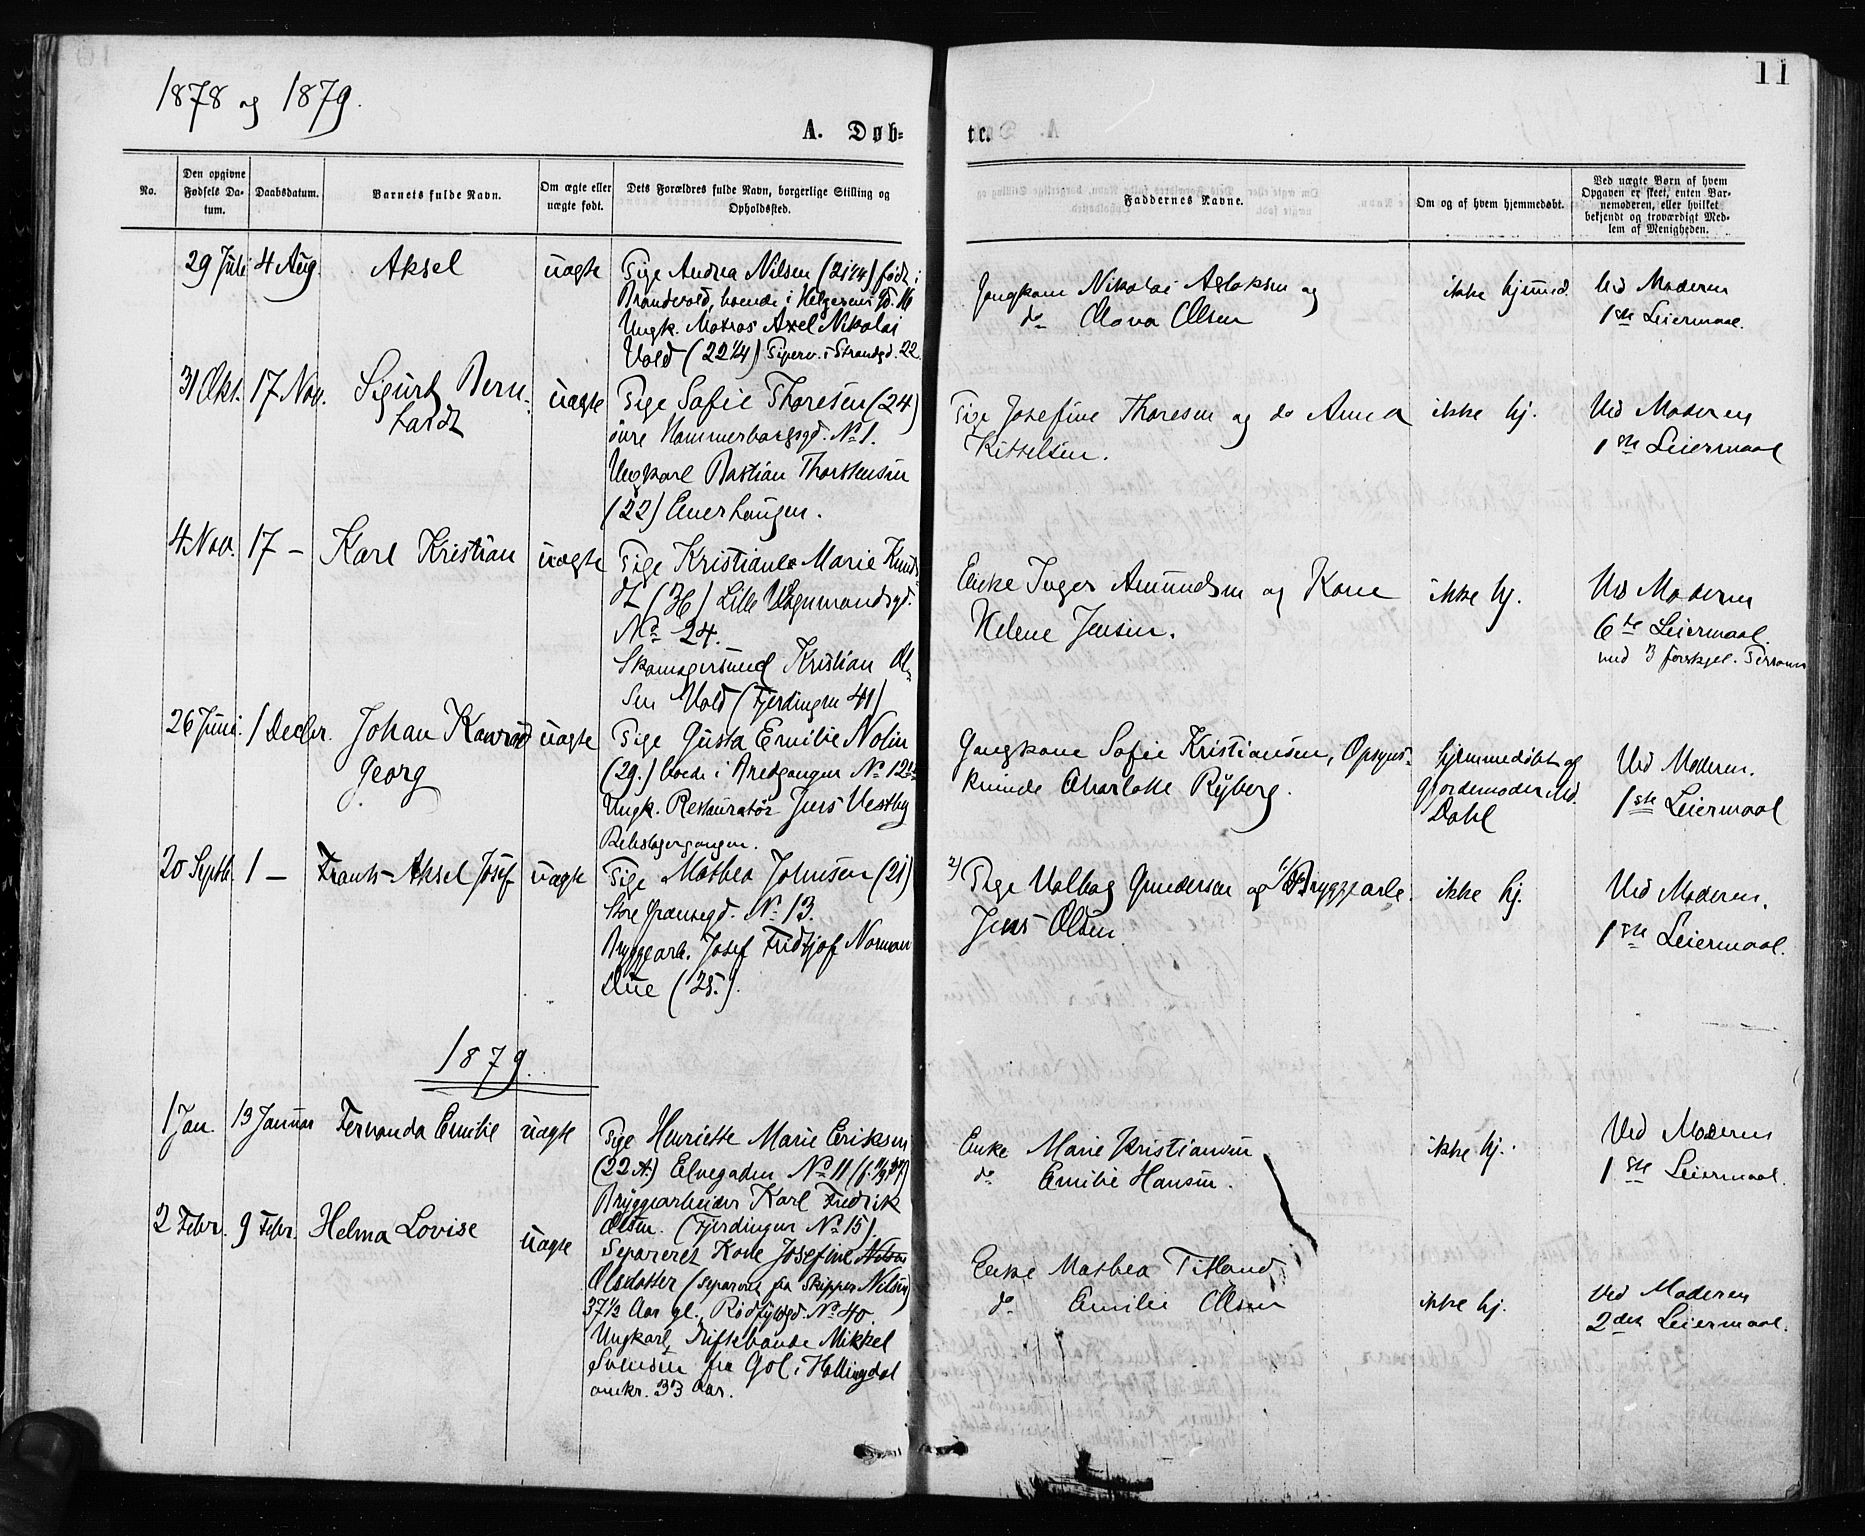 1878 og 1879.
11
A. Døb-
te.
No.
Den opgivne Fødsels Da-tum.
Daabsdatum.
Barnets fulde Navn.
Om ægte eller uægte født.
Dets Forældres fulde Navn, borgerlige Stilling og Opholdsted.
Faddernes Navne.
Om og af hvem hjemmedøbt.
Ved uægte Børn af hvem Opgaven er skeet, enten Bar-nemoderen, eller hvilket bekjendt og troværdigt Med-lem af Menigheden.
29 Juli 4 Aug. Aksel uægte
Pige Andrea Nilsen (21 1/4) født i
Brandvold, boende i
Ungk. Matros Axel Nikolai
Vold (22 1/4) i Strandgd. 22.
Nikolai Aslaksen og
do Olava Olsen
ikke hjemmed.
Ved Moderen
1ste Leiermaal.
31 Okt. 17 Nov. Sigurd Bern-
hardt
uægte
Pige Sofie Thoresen (24)
øvre Hammerborggd. No 1.
Ungkarl Bastian Thorstensen
(22) Enerhaugen.
Pige Josefine Thoresen og do Anna
Kittelsen.
ikke hj.
Ved Moderen
1ste Leiermaal
4 Nov. 17 – Karl Kristian uægte
Pige Kristiane Marie Knuds-
dt (36) Lille Vognmandsgd.
No 24.
Skomagersvend Kristian Ol-
sen Vold (Fjerdingen 41)
Enke Inger Amundsen og Kone
Helene Jensen.
ikke hj.
Ved Moderen
6te Leiermaal.
med 3 forskjel. Personer
26 Juni. 1 Decbr. Johan Konrad
Georg
uægte
Pige Gusta Emilie Nolin
(29.) boede i Bredgangen No 12
Ungk. Restauratør Jens Vestby
Rebslagergangen.
Gangkone Sofie Kristiansen, Opsyns-
kvinde Charlotte Ryberg.
hjemmedøbt af
Gjordemoder Md.
Dahl
Ved Moderen.
1ste Leiermaal
20 Septb. 1 – Frants Aksel Josef uægte
Pige Mathea Johnsen (21)
Store Grænsegd. No 13.
Bryggearb. Josef Fridtjof Norman
Due (25.)
2) Pige Valborg Gundersen og 1) Bryggearb.
Jens Olsen.
ikke hj.
Ved Moderen.
1ste Leiermaal.
1879.
1 Jan. 13 Januar Fernanda Emilie uægte
Pige Henriette Marie Eriksen
(22 A.) Elvegaden No 11
Bryggearbeider Karl Fredrik
Olsen. (Fjerdingen No 15)
Enke Marie Kristiansen
do Emilie Hansen.
ikke hj.
Ved Moderen
1ste Leiermaal.
2 Febr. 9 Febr. Helma Lovise uægte
Separeret Kone Josefine Nilsen
Olsdatter (separeret fra Skipper Nilsen)
37 1/2 Aar gl. Rødfyldgd. No 40.
Ungkarl, Driftebonde Mikkel
Svensen fra Gol i Hallingdal
omkr. 33 Aar.
Enke Mathea Titland
do Emilie Olsen
ikke hj.
Ved Moderen
2det Leiermaal.